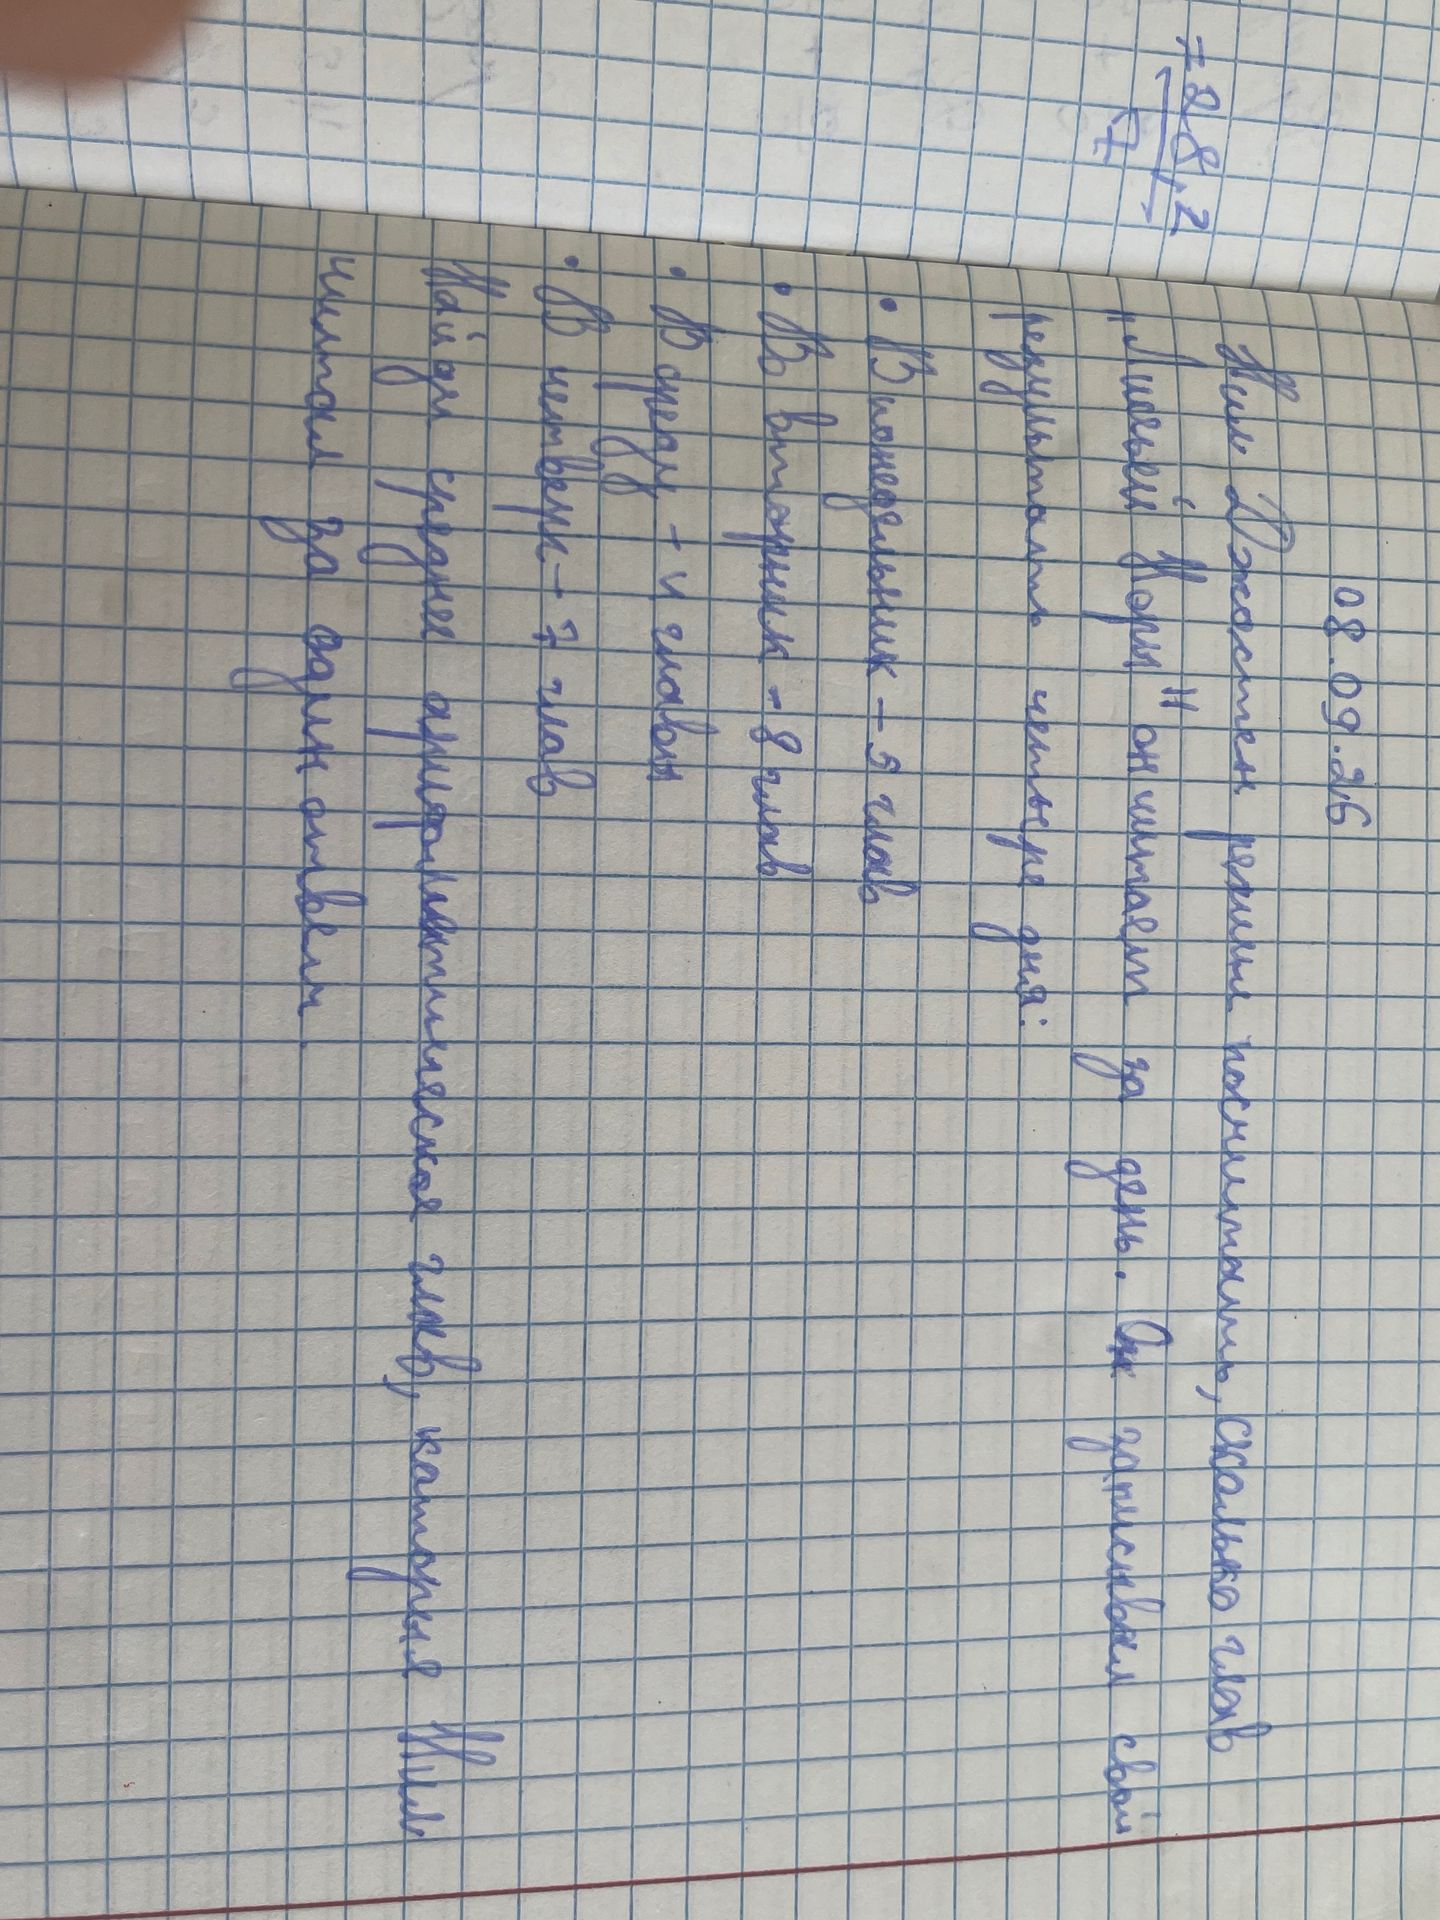 = 28,2
87
08.09.26
Нил Джостен решил посчитать, сколько глав
"Лисьей Норы" он читает за день. Он записывал свои
результаты четыре дня:
• В понедельник - 5 глав
• Во вторник - 8 глав
• В среду - 4 главы
• В четверг - 7 глав
Найди среднее арифметическое глав, которые Нил
читал за один день.